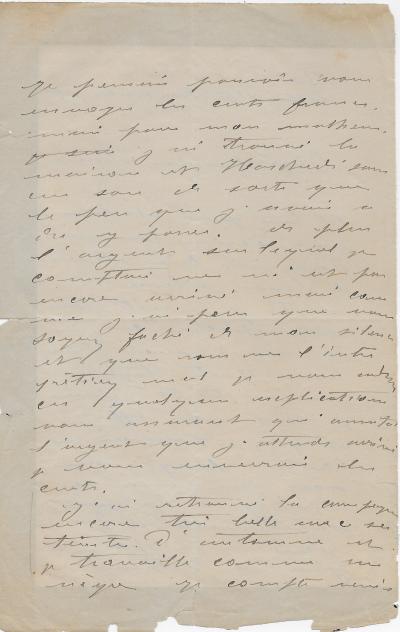 Je pensais pouvoir vous
envoyer les cents francs,
mais pour mon malheur,
j'ai trouvé la
maison et Hoschedé sans
un sou de sorte que
le peu que j'avais a
du y passer. de plus
l'argent sur lequel je
comptais ne m'est pas
encore arrivé mais com
me j'ai peur que vous
soyez faché de mon silence
et que vous me l'inter
prétiez mal je vous
ces quelques explications
vous assurant que aussitot
l'argent que j'attends arrivé
je vous enverrais des
cents.
J'ai retrouvé la campagne
encore très belle avec ses
teintes d'automne et
je travaille comme un
nègre je compte venir